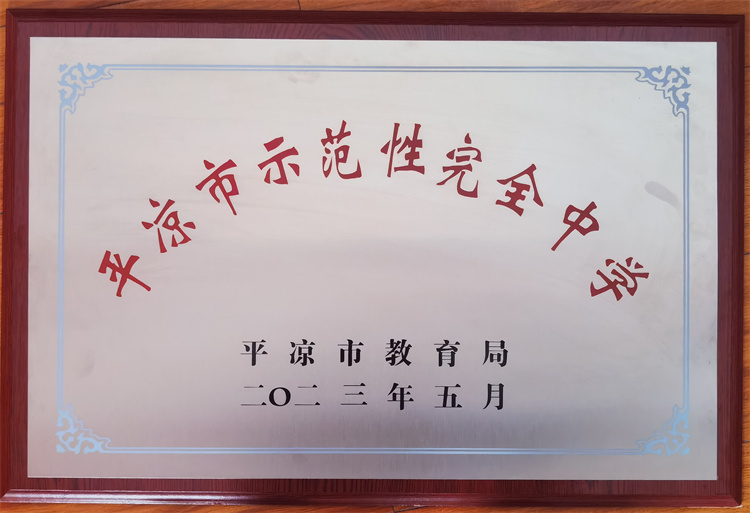 平凉市示范性完全中学
平凉市教育局
二〇二三年五月